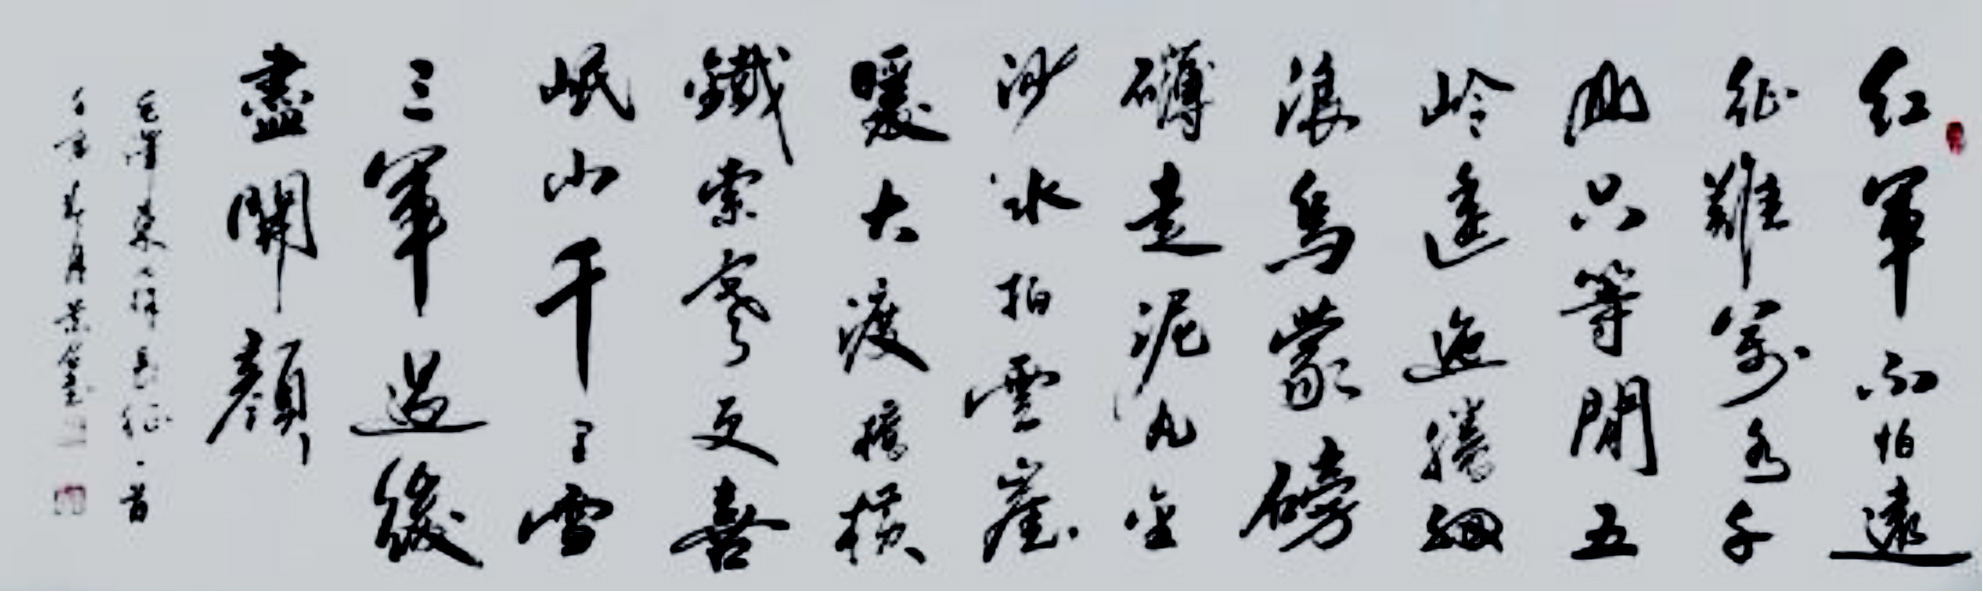 紅軍不怕遠
征難萬水千
山只等閒五
岭逶迤騰細
浪烏蒙磅
礴走泥丸金
沙水拍雲崖
暖大渡橋橫
鐵索寒更喜
岷山千里雪
三軍過後
盡開顏
毛澤東七律長征一首